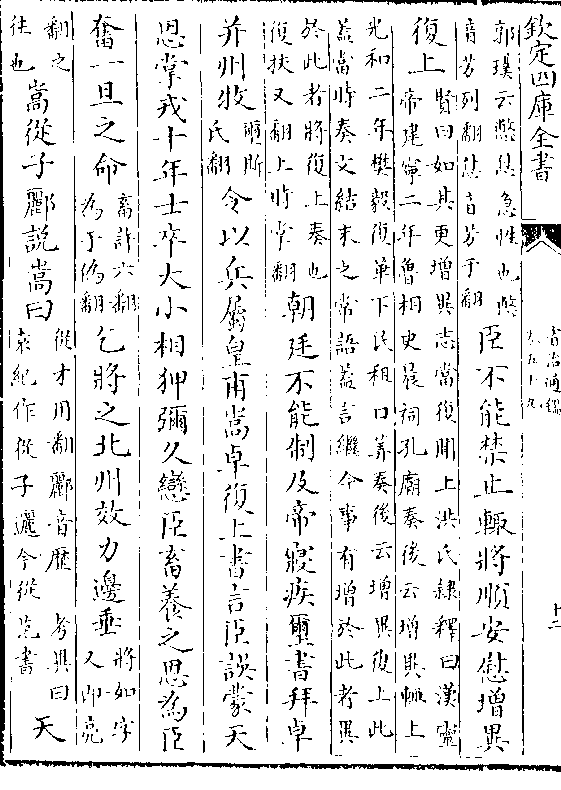 欽定四庫全書
資治通鑑
卷五十九
十二
郭璞云憋怤急性也憋
音芳列翻怤音芳于翻
臣不能禁止輒將順安慰增異
復上
賢曰如其更增異志當復聞上洪氏隸釋曰漢靈
帝建寧二年魯相史晨祠孔廟奏後云增異輒上
光和二年樊毅復華下民租口筭奏後云增異復上此
蓋當時奏文結末之常語蓋言繼今事有增於此者異
於此者將復上奏也
復扶又翻上時掌翻
朝廷不能制及帝寢疾璽書拜卓
并州牧
璽斯
氏翻
令以兵屬皇甫嵩卓復上書言臣誤蒙天
恩掌戎十年士卒大小相狎彌久戀臣畜養之恩為臣
奮一旦之命
畜許六翻
為于偽翻
乞將之北州效力邊垂
將如字
又即亮
翻之
往也
嵩從子酈說嵩曰
從才用翻酈音歷 考異曰
袁紀作從子邐今從范書
天